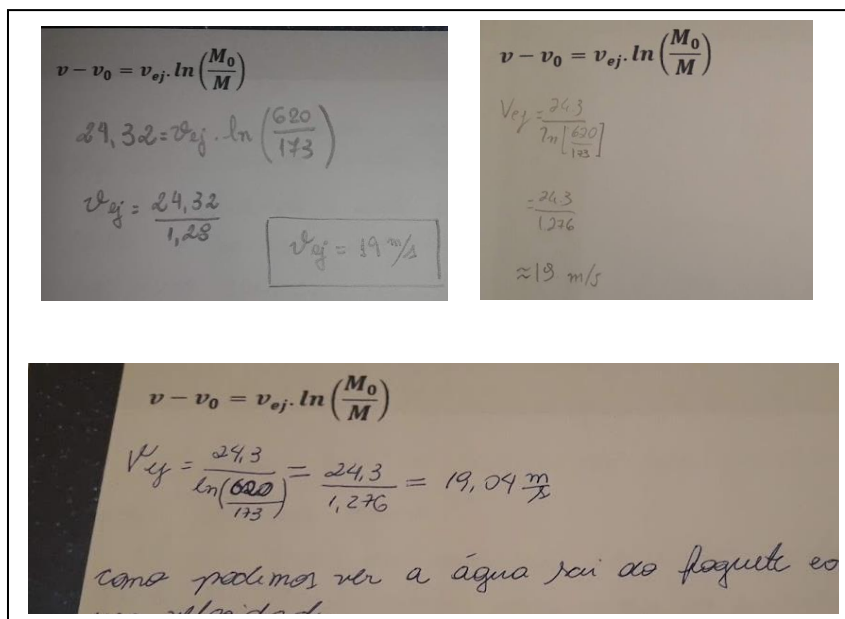 v − v₀ = v_ej. ln(M₀/M)
24,32 = v_ej . ln(620/173)
v_ej = 24,32/1,28
v_ej = 19 m/s
v − v₀ = v_ej. ln(M₀/M)
V_ej = 24,3/ln[620/173]
= 24,3/1,276
≈ 19 m/s
v − v₀ = v_ej. ln(M₀/M)
V_ej = 24,3/ln(620/173) = 24,3/1,276 = 19,04 m/s
como podemos ver a água sai do foguete